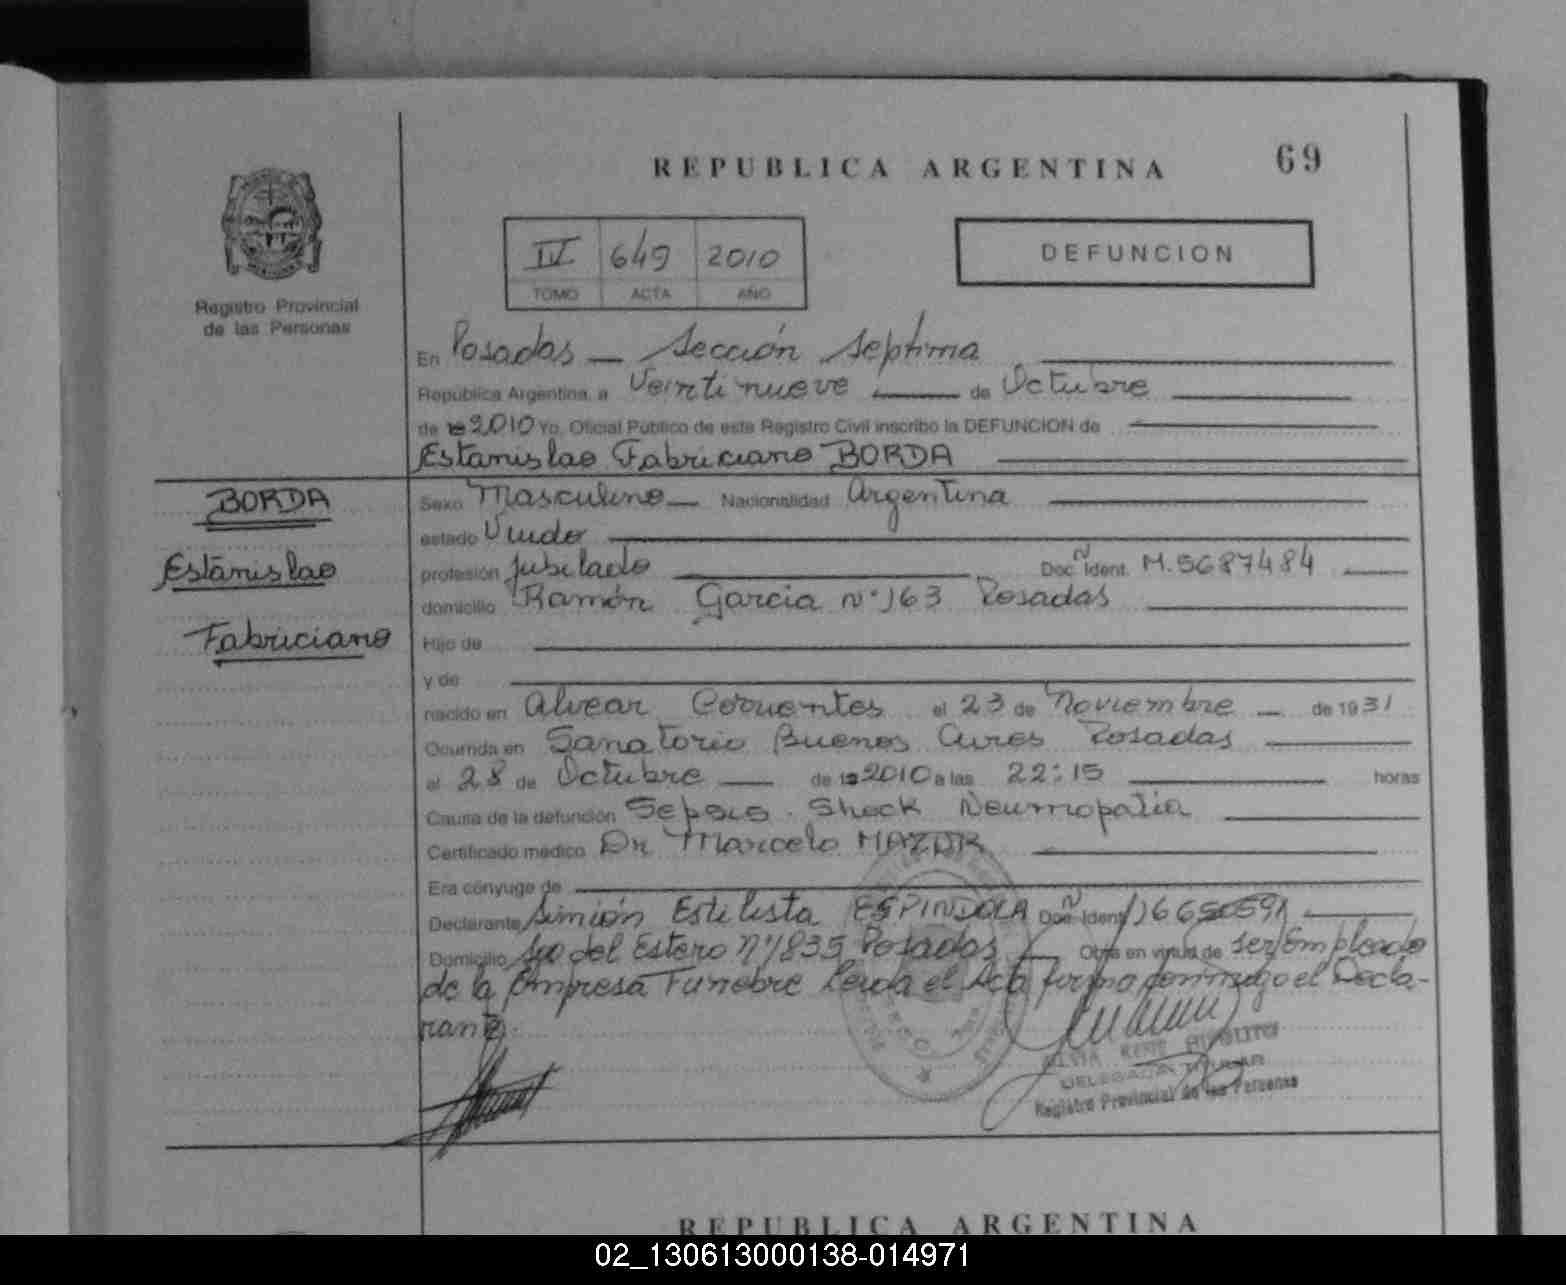 REPUBLICA ARGENTINA 69
IV 649 2010
TOMO ACTA AÑO
DEFUNCION
Registro Provincial
de las Personas
En Posadas — Sección Septima
República Argentina, a Veintinueve de Octubre
de 19 2010 Yo, Oficial Público de este Registro Civil inscribo la DEFUNCION de
Estanislao Fabriciano BORDA
BORDA
Estanislao
Fabriciano
Sexo Masculino Nacionalidad Argentina
estado Viudo
profesión Jubilado Doc. Ident. Nº M.5687484
domicilio Ramón Garcia nº 163 Posadas
Hijo de
y de
nacido en Alvear Corrientes el 23 de Noviembre de 1931
Ocurrida en Sanatorio Buenos Aires Posadas
el 28 de Octubre de 19 2010 a las 22:15 horas
Causa de la defunción Sepsis. Shock Neumopatia
Certificado médico Dr Marcelo MAZUR
Era cónyuge de
Declarante Simión Estilista ESPINDOLA Doc. Ident. Nº
Domicilio Sgo del Estero Nº 1835 Posadas Obra en virtud de ser Empleado
de la Empresa Funebre Leida el Acta firma conmigo el Decla-
rante.
HIPOLITO
DELEGADA TITULAR
Registro Provincial de las Personas
REPUBLICA ARGENTINA
02_130613000138-014971